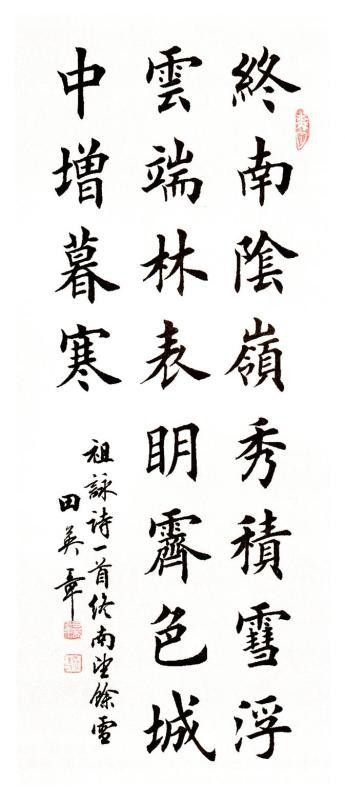 終南陰嶺秀積雪浮
雲端林表明霽色城
中增暮寒
祖詠詩一首終南望餘雪
田英章